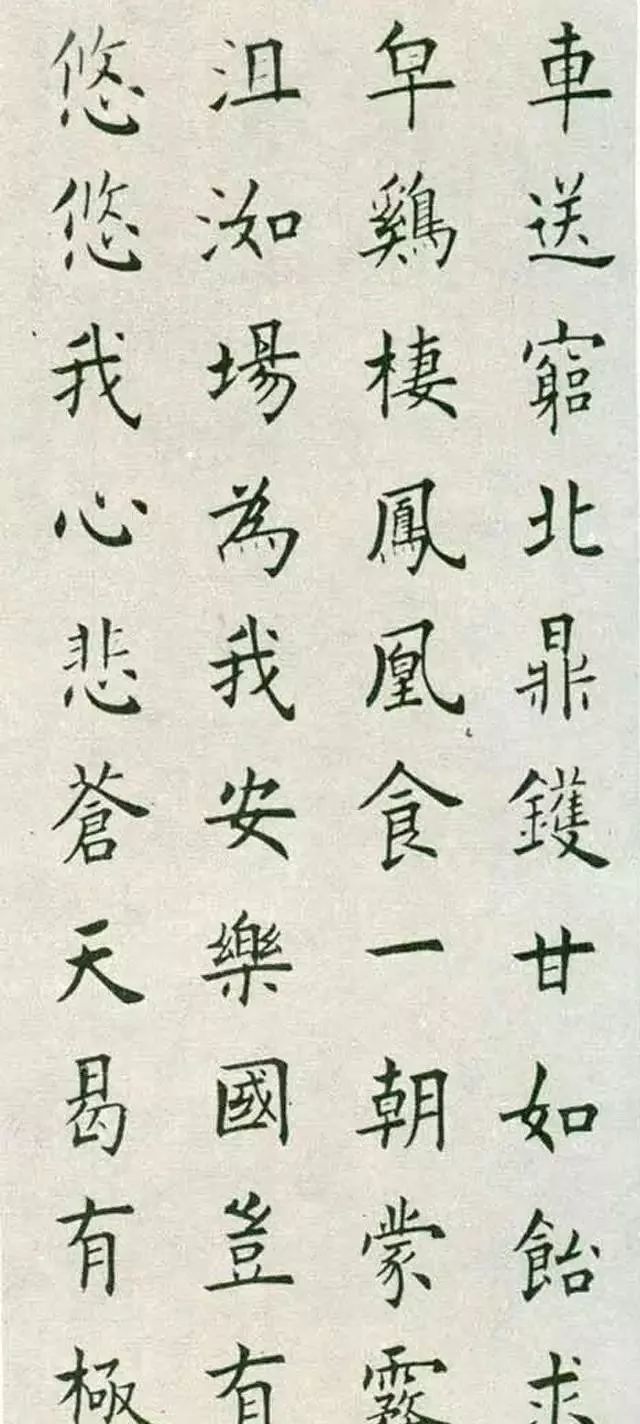 車送窮北鼎鑊甘如飴求
皁鷄棲鳳凰食一朝蒙霧
沮洳場為我安樂國豈有
悠悠我心悲蒼天曷有極